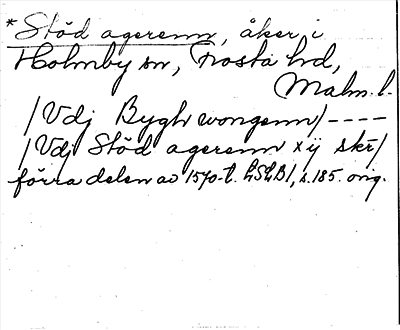 *Stöd agerenn, åker i
Holmby sn, Frosta hd,
Malm. l.
/Vdj Bygh wongenn/----
/Vdj Stöd agerenn x ij skr/
förra delen av 1570-t. LSLB1, s. 185. orig.